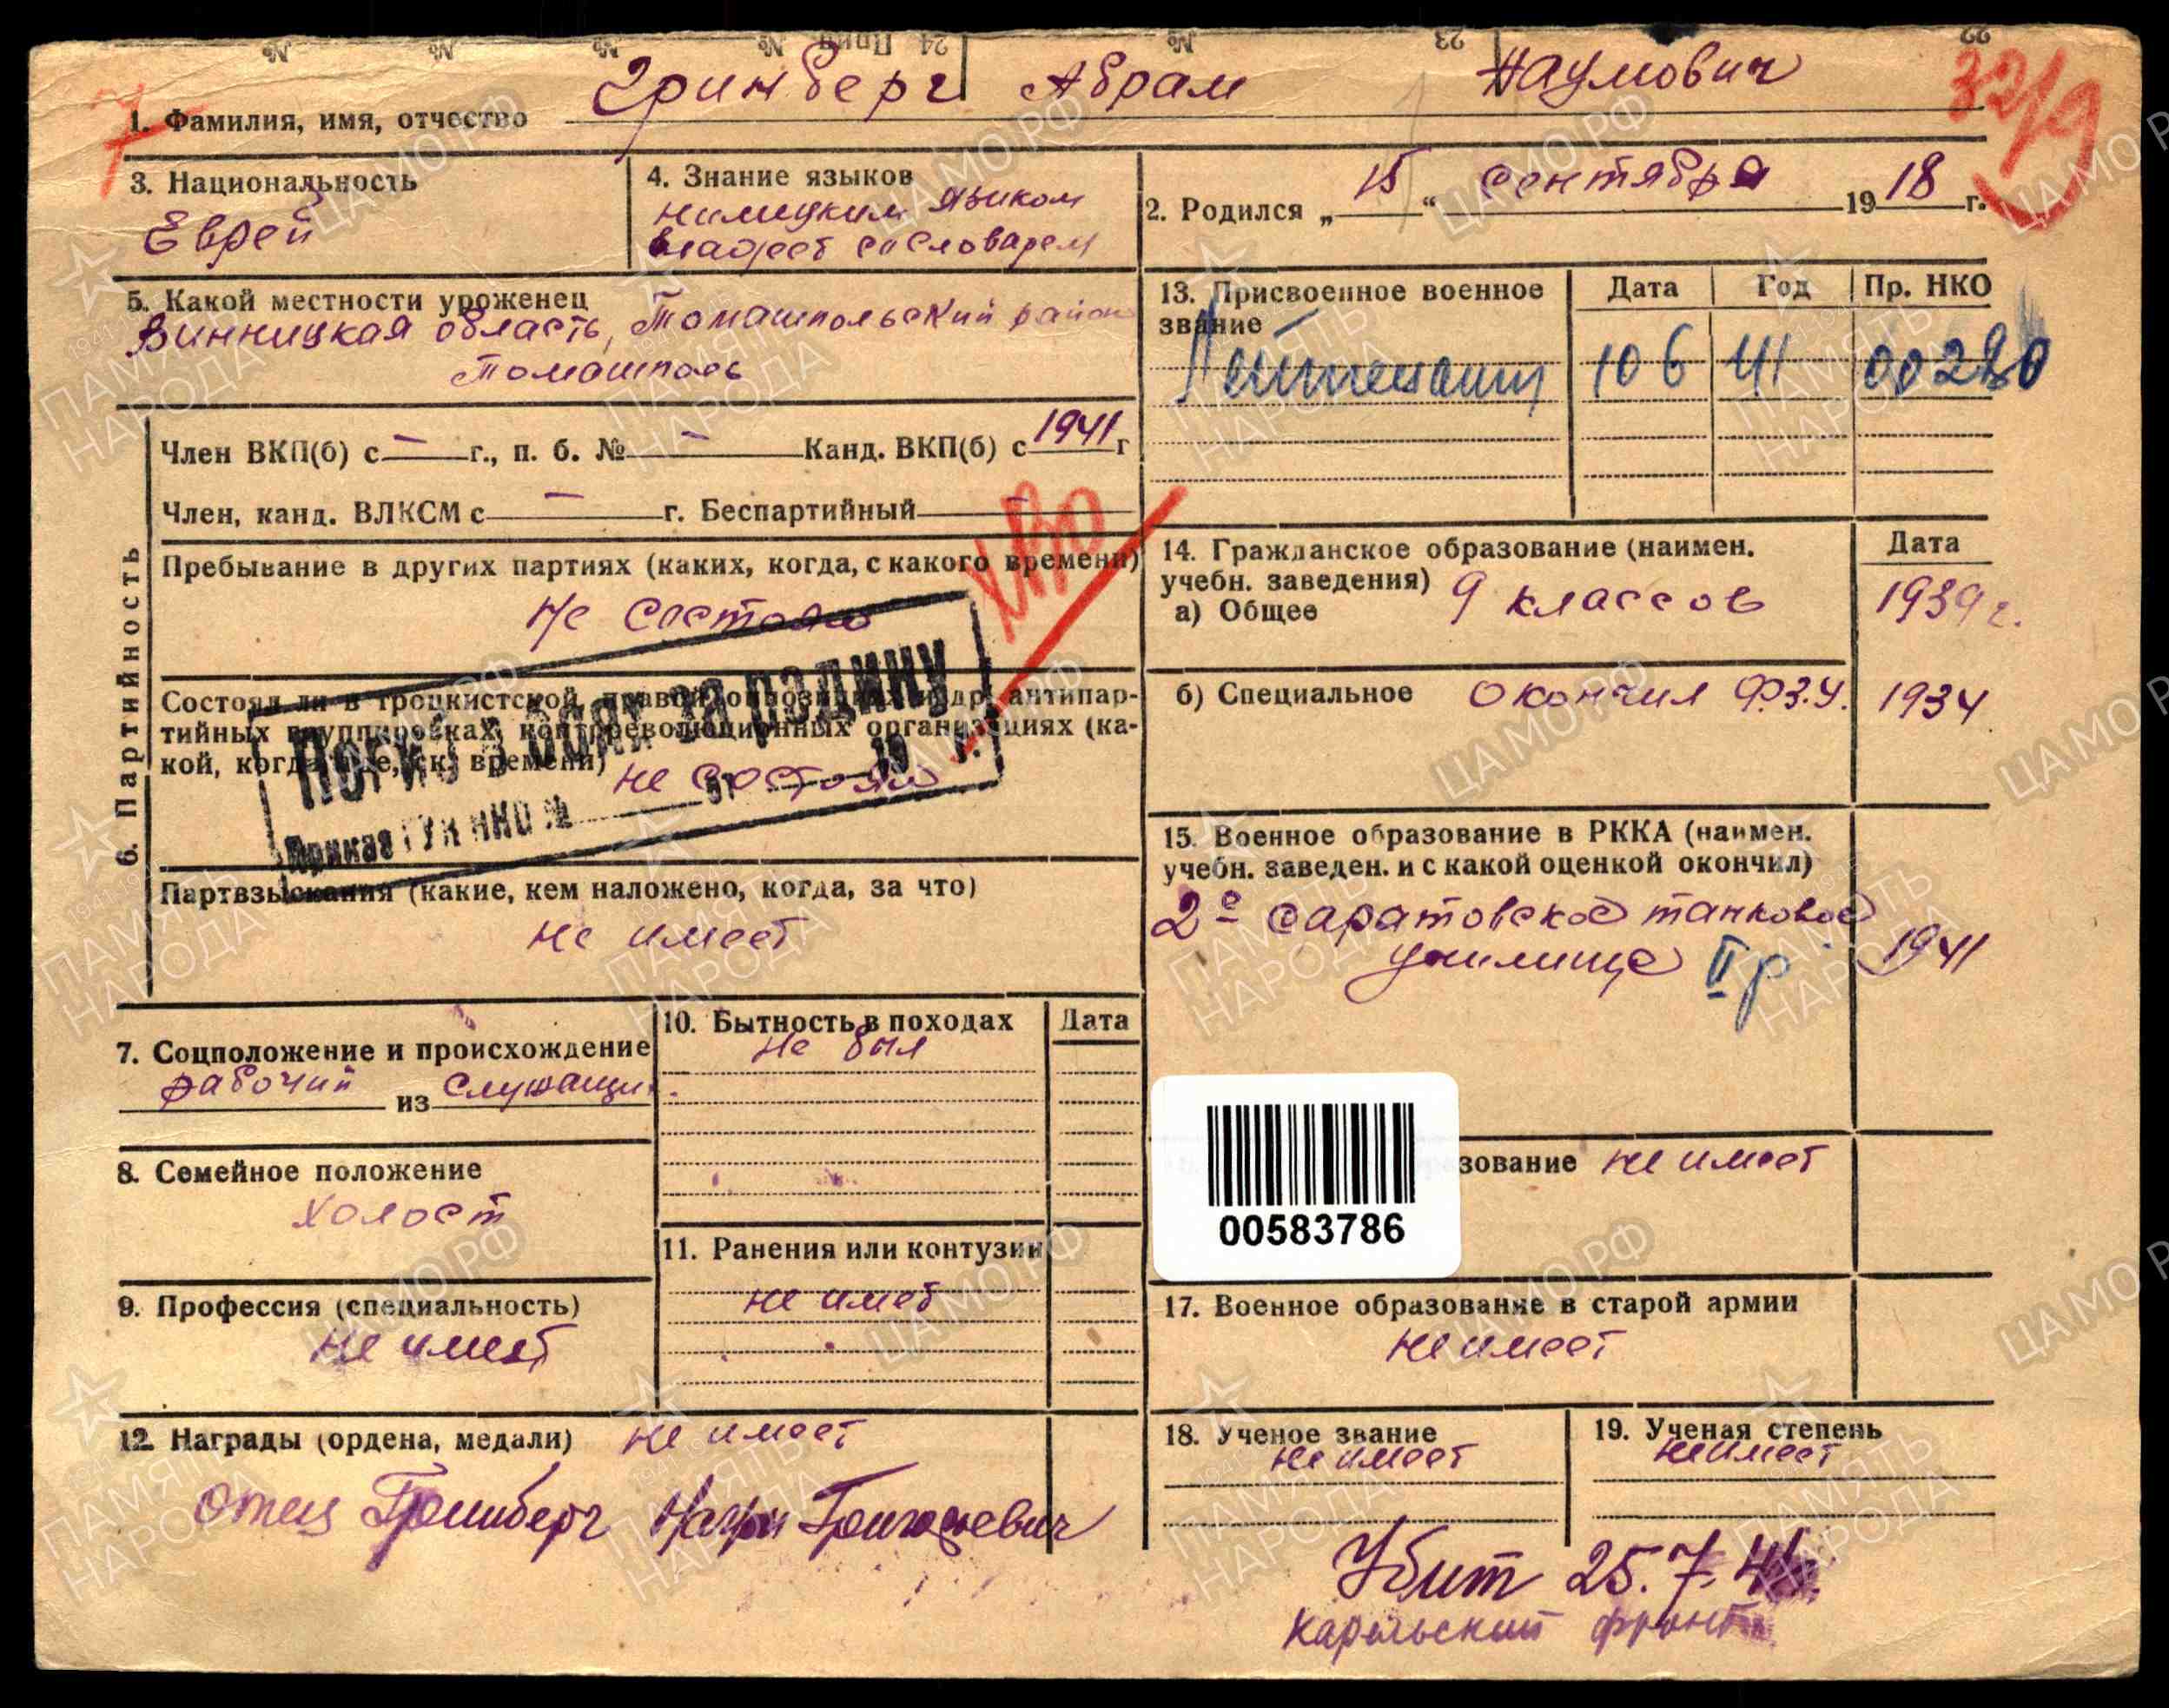 Гринберг Абрам Наумович
1. Фамилия, имя, отчество
32/9
3. Национальность
Еврей
4. Знание языков
немецким языком
владеет со словарем
2. Родился „ 15 “ сентября 1918 г.
5. Какой местности уроженец
Винницкая область, Томашпольский район
Томашполь
13. Присвоенное военное звание
Дата Год Пр. НКО
Лейтенант 10 6 41
6. Партийность
Член ВКП(б) с — г., п. б. № — Канд. ВКП(б) с 1941 г
Член, канд. ВЛКСМ с — г. Беспартийный —
Пребывание в других партиях (каких, когда, с какого времени)
Не состоял
ХВО
Состоял ли в троцкистской, правой оппозициях и др. антипар-
тийных группировках, контрреволюционных организациях (ка-
кой, когда, где, с к. времени)
не состоял
Погиб в боях за родину
Приказ ГУК НКО № от 19 г.
Партвзыскания (какие, кем наложено, когда, за что)
не имеет
14. Гражданское образование (наимен.
учебн. заведения)
Дата
а) Общее 9 классов 1939 г.
б) Специальное окончил Ф.З.У. 1934
15. Военное образование в РККА (наимен.
учебн. заведен. и с какой оценкой окончил)
2е саратовское танковое
училище II р 1941
7. Соцположение и происхождение
рабочий из служащих
8. Семейное положение
холост
9. Профессия (специальность)
не имеет
10. Бытность в походах Дата
не был
11. Ранения или контузии
не имеет
00583786
зование не имеет
17. Военное образование в старой армии
не имеет
12. Награды (ордена, медали) не имеет
Отец Гринберг Григорьевич
18. Ученое звание
не имеет
19. Ученая степень
не имеет
Убит 25.7.41
Карельский фронт
ЦАМО.РФ
ПАМЯТЬ НАРОДА